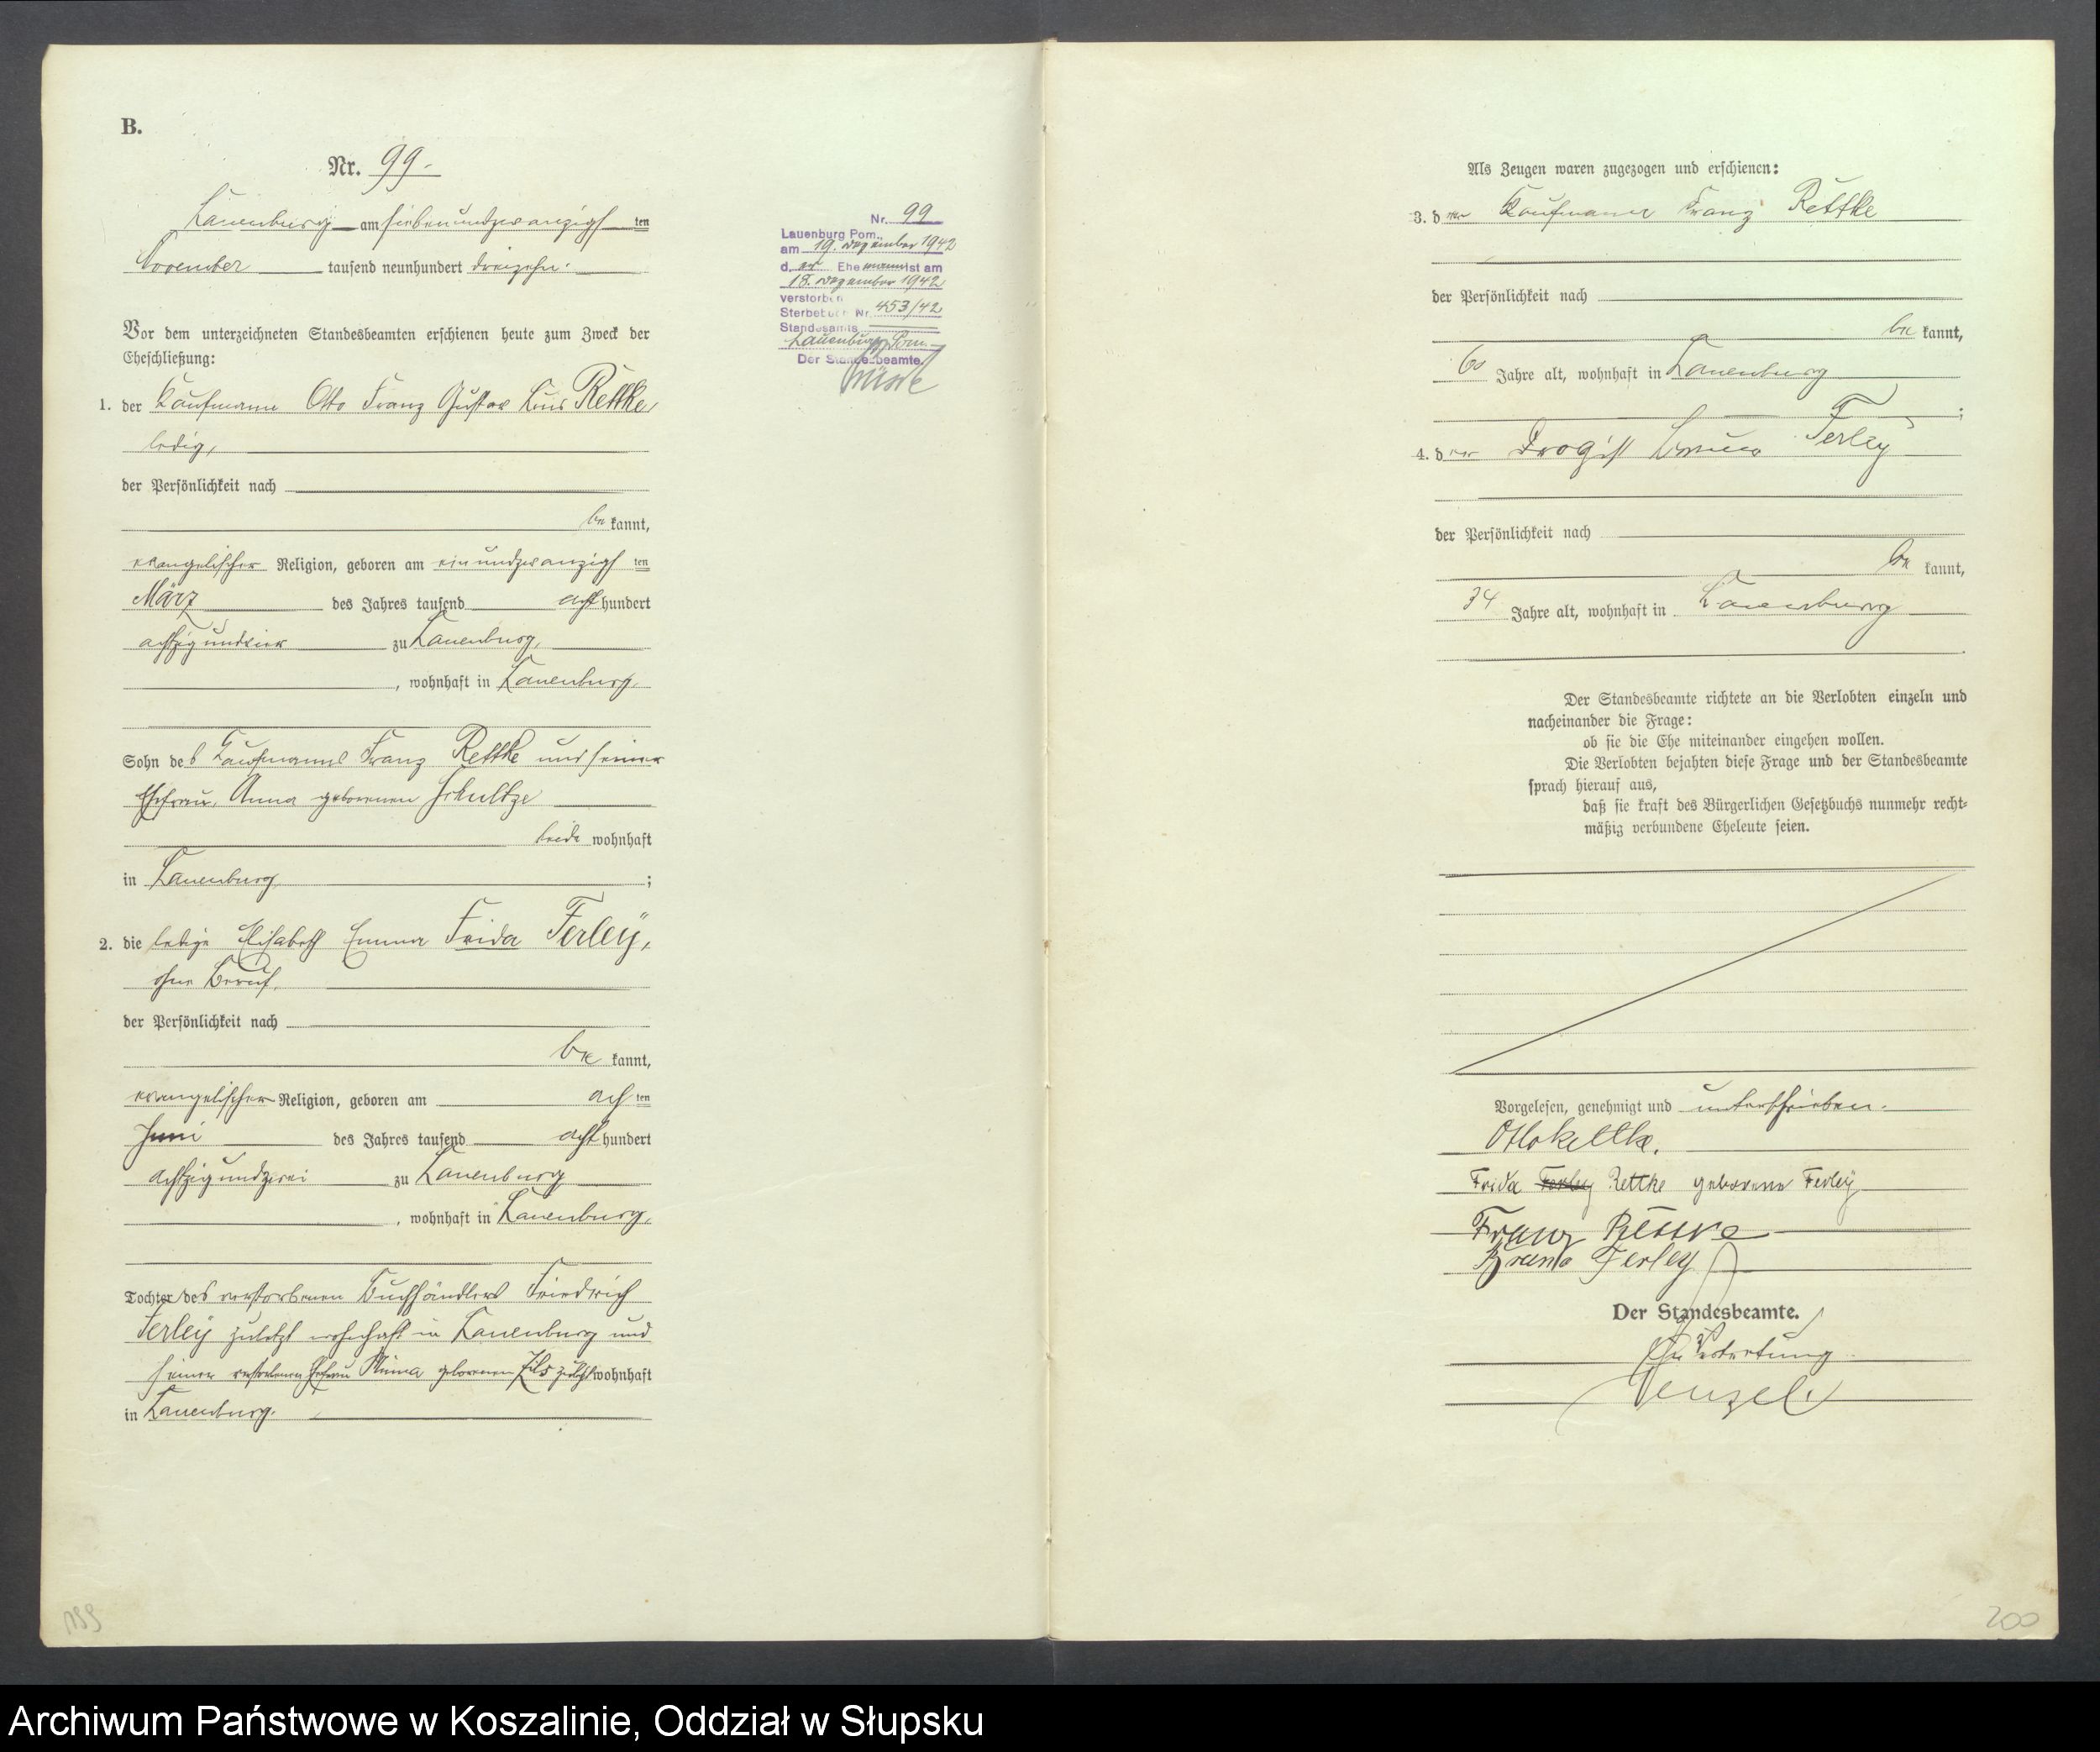 B.
Nr. 99.
Lauenburg am siebenundzwanzigsten
November tausend neunhundert dreizehn.
Vor dem unterzeichneten Standesbeamten erschienen heute zum Zweck der
Eheschließung:
1. der Kaufmann Otto Franz Gustav Rettke,
ledig,
der Persönlichkeit nach
be kannt,
evangelischer Religion, geboren am einundzwanzigsten
März des Jahres tausend acht hundert
achtzigundvier zu Lauenburg,
, wohnhaft in Lauenburg,
Sohn des Kaufmanns Franz Rettke und seiner
Ehefrau, Anna geborenen Schultze
beide wohnhaft
in Lauenburg ;
2. die ledige Elisabeth Emma Frida Ferley,
ohne Beruf,
der Persönlichkeit nach
be kannt,
evangelischer Religion, geboren am achten
Juni des Jahres tausend acht hundert
achtzigundzwei zu Lauenburg
, wohnhaft in Lauenburg,
Tochter des verstorbenen Buchhändlers Friedrich
Ferley zuletzt wohnhaft in Lauenburg und
seiner verstorbenen Ehefrau geborenen zuletzt wohnhaft
in Lauenburg.
Nr. 99
Lauenburg Pom.,
am 19. Dezember 1942
d. er Ehemann ist am
18. Dezember 1942
verstorben
Sterbebuch Nr. 453/42
Standesamts
Lauenburg Pom.
Der Standesbeamte.
199
Als Zeugen waren zugezogen und erschienen:
3. der Kaufmann Franz Rettke
der Persönlichkeit nach
be kannt,
60 Jahre alt, wohnhaft in Lauenburg
;
4. der Drogist Bruno Ferley
der Persönlichkeit nach
be kannt,
34 Jahre alt, wohnhaft in Lauenburg
Der Standesbeamte richtete an die Verlobten einzeln und
nacheinander die Frage:
ob sie die Ehe miteinander eingehen wollen.
Die Verlobten bejahten diese Frage und der Standesbeamte
sprach hierauf aus,
daß sie kraft des Bürgerlichen Gesetzbuchs nunmehr recht-
mäßig verbundene Eheleute seien.
Vorgelesen, genehmigt und unterschrieben.
Otto Rettke.
Frida Ferley Rettke geborene Ferleÿ
Franz Rettke
Bruno Ferley
Der Standesbeamte.
In Vertretung
Wenzel
200
Archiwum Państwowe w Koszalinie, Oddział w Słupsku